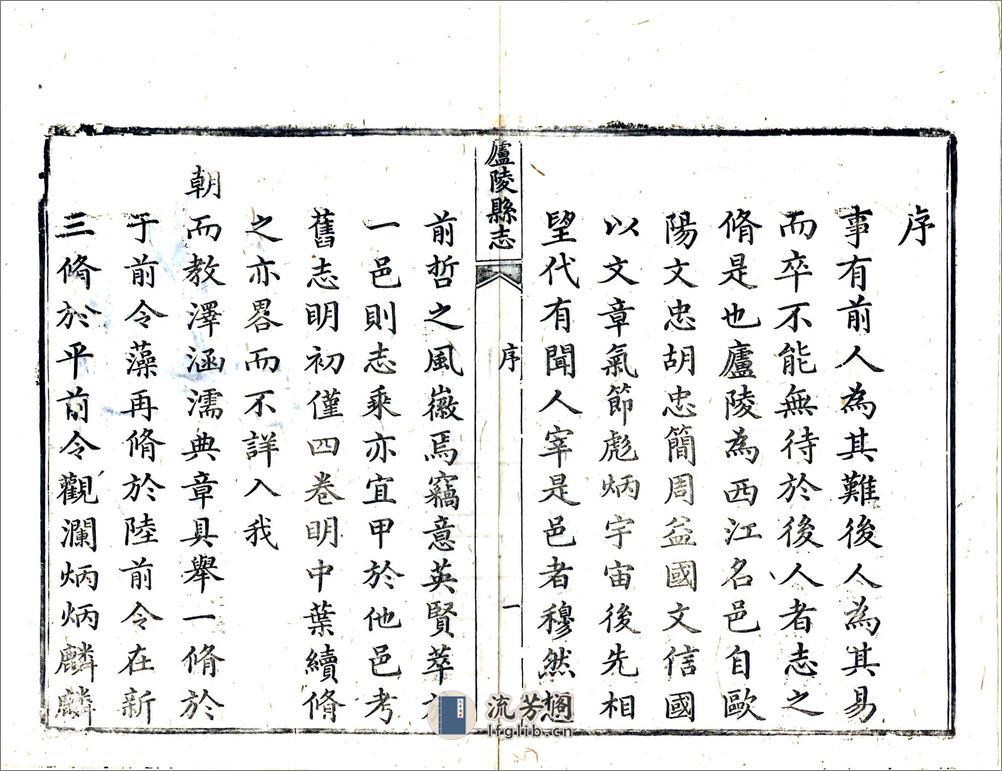 序
事有前人為其難後人為其易
而卒不能無待於後人者志之
脩是也廬陵為西江名邑自歐
陽文忠胡忠簡周益國文信國
以文章氣節彪炳宇宙後先相
望代有聞人宰是邑者穆然想
廬陵縣志
序
一
前哲之風徽焉竊意英賢萃
一邑則志乘亦宜甲於他邑考
舊志明初僅四卷明中葉續脩
之亦畧而不詳入我
朝而教澤涵濡典章具舉一脩於
于前令藻再脩於陸前令在新
三脩於平前令觀瀾炳炳麟麟
流芳阁
lfglib.cn